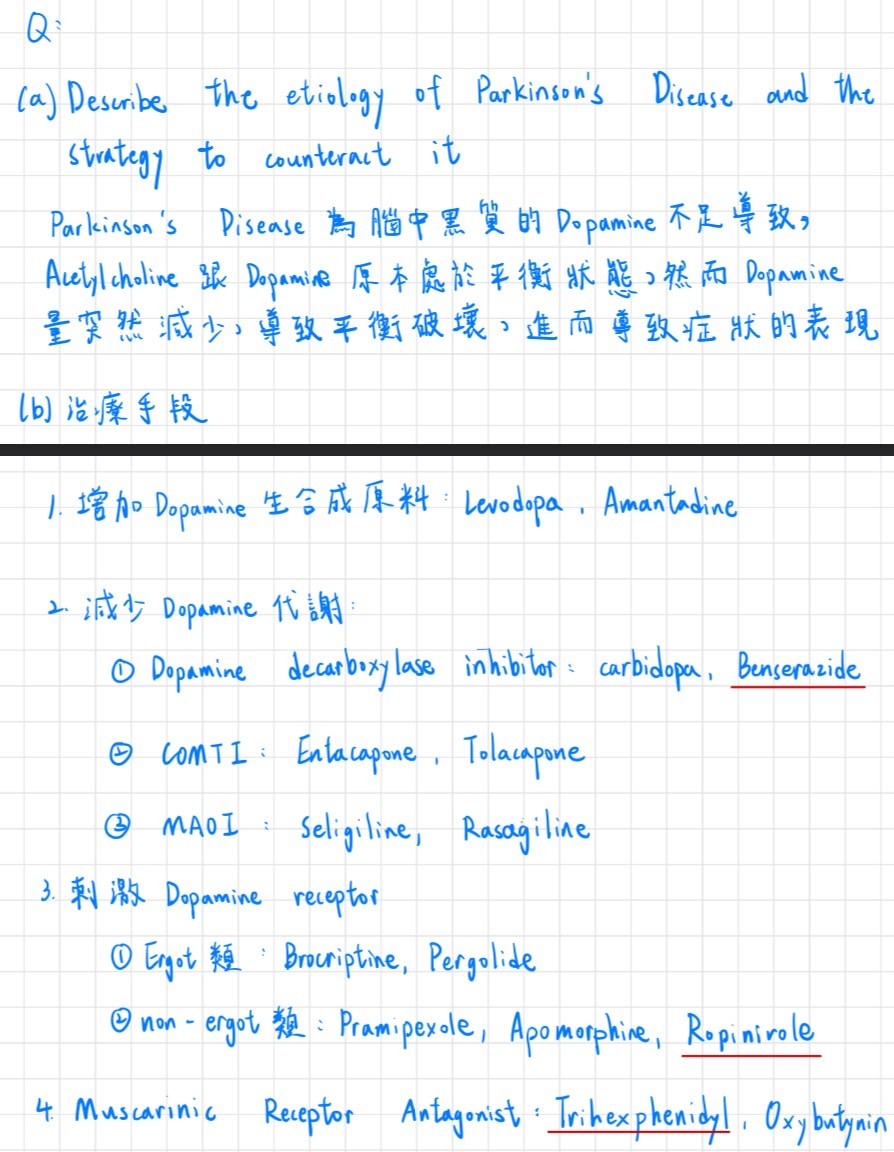 Q:
(a) Describe the etiology of Parkinson's Disease and the
strategy to counteract it
Parkinson's Disease 為腦中黑質的 Dopamine 不足導致,
Acetylcholine 跟 Dopamine 原本處於平衡狀態,然而 Dopamine
量突然減少,導致平衡破壞,進而導致症狀的表現
(b) 治療手段
1. 增加 Dopamine 生合成原料: Levodopa, Amantadine
2. 減少 Dopamine 代謝:
① Dopamine decarboxylase inhibitor: carbidopa, Benserazide
② COMTI: Entacapone, Tolacapone
③ MAOI: Seligiline, Rasagiline
3. 刺激 Dopamine receptor
① Ergot 類: Brocriptine, Pergolide
② non-ergot 類: Pramipexole, Apomorphine, Ropinirole
4. Muscarinic Receptor Antagonist: Trihexphenidyl, Oxybutynin